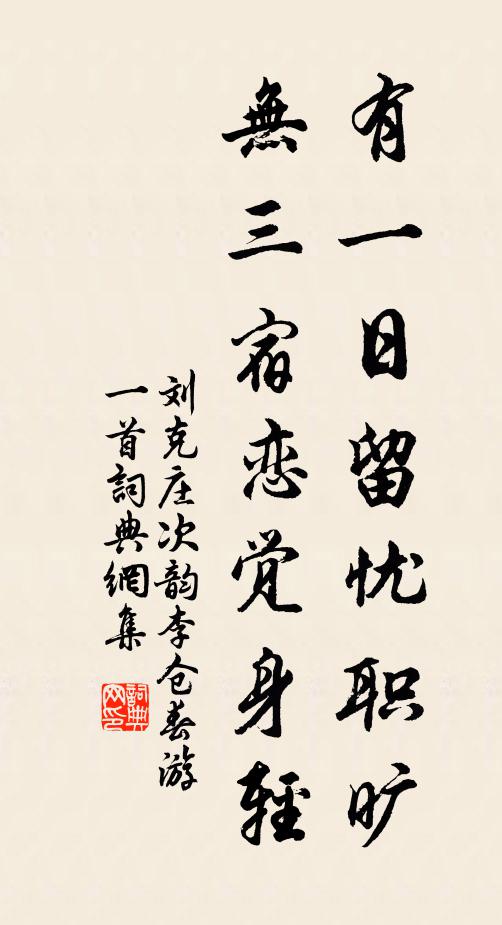 有一日留忧职旷
無三宿恋觉身輕
刘克庄次韵李仓春游
一首詞典網集
詞典网印